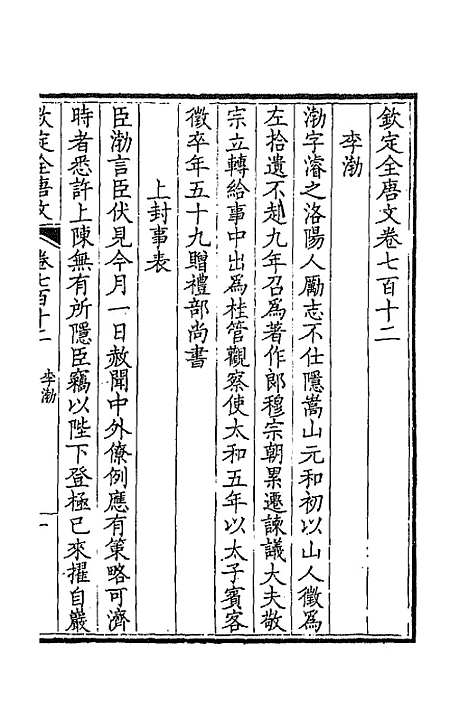 欽定全唐文卷七百十二
李渤
渤字濬之洛陽人厲志不仕隱嵩山元和初以山人徵爲
左拾遺不赴九年召爲著作郎穆宗朝累遷諫議大夫敬
宗立轉給事中出爲桂管觀察使太和五年以太子賓客
徵卒年五十九贈禮部尚書
上封事表
臣渤言臣伏見今月一日赦聞中外僚例應有策略可濟
時者悉許上陳無有所隱臣竊以陛下登極已來擢自嚴
欽定全唐文
卷七百十二
李渤
一